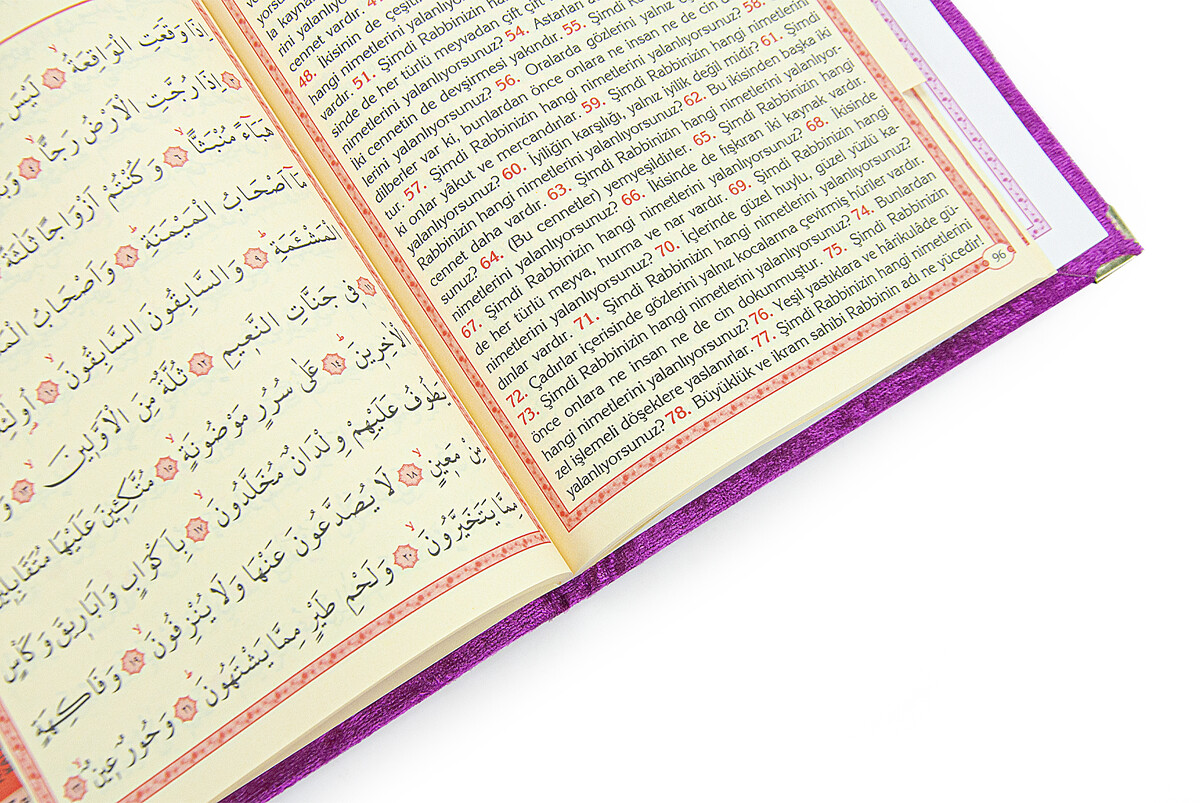 اِذَا وَقَعَتِ الْوَاقِعَةُ ﴿١﴾ لَيْسَ
﴿٣﴾ اِذَا رُجَّتِ الْاَرْضُ رَجًّا ﴿٤﴾
هَبَٓاءً مُنْبَثًّا ﴿٦﴾ وَكُنْتُمْ اَزْوَاجًا ثَلٰثَةً
مَٓا اَصْحَابُ الْمَيْمَنَةِ ﴿٨﴾ وَاَصْحَابُ
الْمَشْـَٔمَةِ ﴿٩﴾ وَالسَّابِقُونَ السَّابِقُونَ ﴿١٠﴾
﴿١١﴾ فِى جَنَّاتِ النَّعِيمِ ﴿١٢﴾ ثُلَّةٌ مِنَ الْاَوَّلِينَ ﴿١٣﴾
الْاٰخِرِينَ ﴿١٤﴾ عَلٰى سُرُرٍ مَوْضُونَةٍ ﴿١٥﴾ مُتَّكِـِٔينَ عَلَيْهَا مُتَقَابِلِينَ
يَطُوفُ عَلَيْهِمْ وِلْدَانٌ مُخَلَّدُونَ ﴿١٧﴾ بِاَكْوَابٍ وَاَبَارِيقَ وَكَاْسٍ
مِنْ مَعِينٍ ﴿١٨﴾ لَا يُصَدَّعُونَ عَنْهَا وَلَا يُنْزِفُونَ ﴿١٩﴾ وَفَاكِهَةٍ
مِمَّا يَتَخَيَّرُونَ ﴿٢٠﴾ وَلَحْمِ طَيْرٍ مِمَّا يَشْتَهُونَ ﴿٢١﴾ وَحُورٌ عِينٌ ﴿٢٢﴾
la kaynar
rini yalanlıyor
cennet vardır.
48. İkisinin de çeşitli
hangi nimetlerini yalanlıyorsunuz?
vardır. 51. Şimdi Rabbinizin
sinde de her türlü meyvadan çift çift
nimetlerini yalanlıyorsunuz? 54. Astarları
iki cennetin de devşirmesi yakındır. 55. Şimdi
lerini yalanlıyorsunuz? 56. Oralarda gözlerini yalnız
dilberler var ki, bunlardan önce onlara ne insan ne de cin
tur. 57. Şimdi Rabbinizin hangi nimetlerini yalanlıyorsunuz? 58.
ki onlar yâkut ve mercandırlar. 59. Şimdi Rabbinizin hangi nimetlerini
yalanlıyorsunuz? 60. İyiliğin karşılığı, yalnız iyilik değil midir? 61. Şimdi
Rabbinizin hangi nimetlerini yalanlıyorsunuz? 62. Bu ikisinden başka iki
cennet daha vardır. 63. Şimdi Rabbinizin hangi nimetlerini yalanlıyor-
sunuz? 64. (Bu cennetler) yemyeşildirler. 65. Şimdi Rabbinizin hangi
nimetlerini yalanlıyorsunuz? 66. İkisinde de fışkıran iki kaynak vardır.
67. Şimdi Rabbinizin hangi nimetlerini yalanlıyorsunuz? 68. İkisinde
de her türlü meyva, hurma ve nar vardır. 69. Şimdi Rabbinizin hangi
nimetlerini yalanlıyorsunuz? 70. İçlerinde güzel huylu, güzel yüzlü ka-
dınlar vardır. 71. Şimdi Rabbinizin hangi nimetlerini yalanlıyorsunuz?
72. Çadırlar içerisinde gözlerini yalnız kocalarına çevirmiş hûriler vardır.
73. Şimdi Rabbinizin hangi nimetlerini yalanlıyorsunuz? 74. Bunlardan
önce onlara ne insan ne de cin dokunmuştur. 75. Şimdi Rabbinizin
hangi nimetlerini yalanlıyorsunuz? 76. Yeşil yastıklara ve hârikulâde gü-
zel işlemeli döşeklere yaslanırlar. 77. Şimdi Rabbinizin hangi nimetlerini
yalanlıyorsunuz? 78. Büyüklük ve ikram sahibi Rabbinin adı ne yücedir!
96